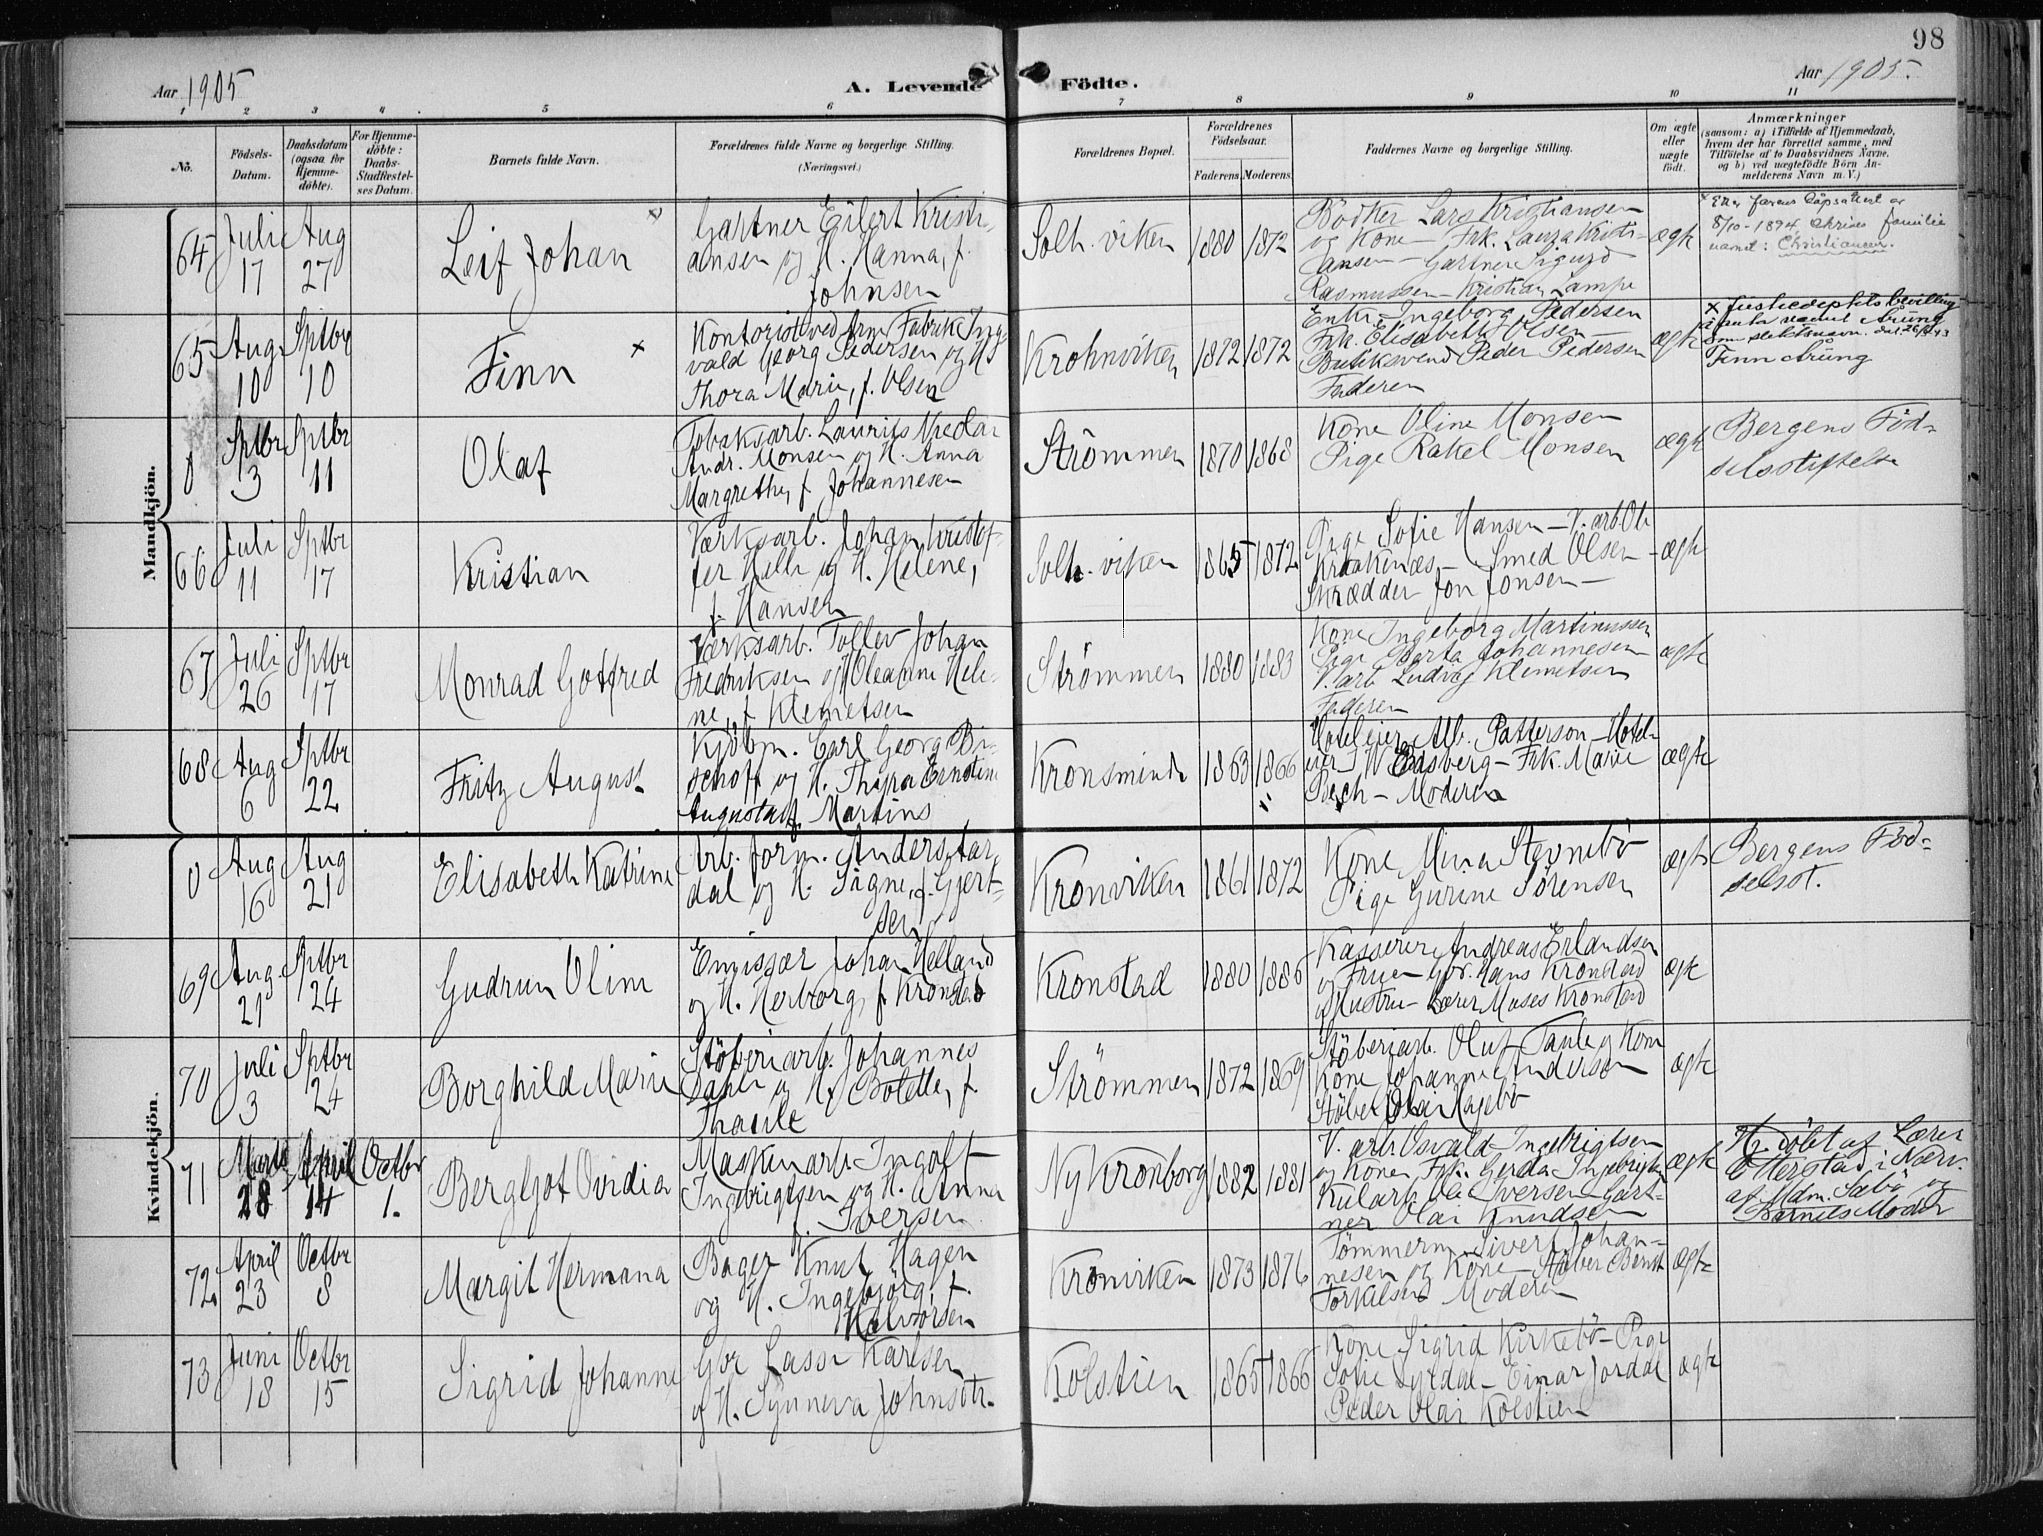 98
Aar 1905
A. Levende Födte.
Aar 1905.
1 2 3 4 5 6 7 8 9 10 11
No.
Födsels-
Datum.
Daabsdatum
(ogsaa for
Hjemme-
döbte).
For Hjemme-
döbte:
Daabs-
Stadfæstel-
ses Datum.
Barnets fulde Navn.
Forældrenes fulde Navne og borgerlige Stilling.
(Næringsvei.)
Forældrenes Bopæl.
Forældrenes
Födselsaar.
Faderens. Moderens.
Faddernes Navne og borgerlige Stilling.
Om ægte
eller
uægte
født.
Anmærkninger
(saasom: a) i Tilfælde af Hjemmedaab,
hvem der har forrettet samme, med
Tilföielse af to Daabsvidners Navne,
og b) ved uægtefödte Börn An-
melderens Navn m. V.)
Mandkjön.
64
Juli
17
Aug
27
Leif Johan ×
Gartner Eilert Kristi-
ansen og H. Hanna, f.
Johnsen
Solh. viken
1880 1872
Bödker Lars Kristiansen
og Kone – Frk. Laura Kristi-
ansen – Gartner Sigurd
Rasmussen – Kristian Lampe
ægte
8/10-1894, skrives familie
navnet: Christiansen.
65
Aug
10
Sptbr
10
Finn ×
Kontorist ved Arne Fabrik Ing-
vald Georg Pedersen og H
Thora Marie, f. Olsen
Krohnviken
1872 1872
Enke Ingeborg Pedersen
Frk. Elisabeth Olsen
Butiksvend Peder Pedersen
Faderen
ægte
som slektsnavn.
Finn Arüng
0
Sptbr
3
Sptbr
11
Olaf
Tobaksarb. Laurits Nicolai
Andr. Monsen og H. Anna
Margrethe, f. Johannesen
Strömmen
1870 1868
Kone Oline Monsen
Pige Rakel Monsen
ægte
Bergens Föd-
selsstiftelse
66
Juli
11
Sptbr
17
Kristian
Værksarb. Johan Kristof-
fer Helle og H. Helene,
f. Hansen
Solh. viken
1865 1872
Pige Sofie Hansen – V. arb Ole
Kraakenæs – Smed Olsen –
Skrædder Jon Jonsen –
ægte
67
Juli
26
Sptbr
17
Monrad Gotfred
Værksarb. Tollev Johan
Fredriksen og H Oleanne Heli-
ne, f. Klemetsen
Strömmen
1880 1883
Kone Ingeborg Martinussen
Pige Berta Johannesen
V. arb Ludvig Klemetsen
Faderen
ægte
68
Aug
6
Sptbr
22
Fritz August
Kjöbm. Carl Georg Bi-
schoff og H. Thora Ernstine
Augusta f. Martins
Kronsminde
1863 1866
Hoteleier Alb. Patterson – Hotel-
eier – Frk. Marie
– Moderen
ægte
Kvindekjön.
0
Aug
16
Aug
21
Elisabeth Katrine
Arb. form. Anders Aar-
dal og H. Signe, f. Gjert-
sen
Kronviken
1861 1872
Kone Mina Stavnebö
Pige Gurine Sörensen
ægte
Bergens Föd-
selsst.
69
Aug.
21
Sptbr
24
Gudrun Oline
Emissær Johan Helland
og H. Herborg, f. Kronstad
Kronstad
1880 1886
Kasserer Andreas Erlandsen
og Frue – Gbr. Hans Kronstad
og Hustru – Lærer Moses Kronstad
ægte
70
Juli
3
Sptbr
24
Borghild Marie
Stöberiarb. Johannes
Dahle og H. Bolette, f.
Thaule
Strömmen
1872 1869
Stöberiarb. Oluf Taule og Kone
Kone Johanne Anderson
Stöber Olai Hagebö
ægte
71
Marts
28
April
14
Octbr
1.
Bergljot Ovidia
Maskinarb. Ingolf
Ingebrigtsen og H. Anna
f. Iversen
Ny Kronborg
1882 1881
V. arb. Osvald Ingebrigtsen
og Kone Frk. Gerda Ingebrigtsen
Kularb. Ole Iversen – Gart-
ner Olai Knudsen
ægte
Hj. döbt af Lærer
Otterstad i Nærv.
af Mdm. Sæbö og
Barnets Moder
72
April
23
Octbr
8
Margit Hermana
Bager Knut Hagen
og H. Ingebjörg, f.
Halvorsen
Kronviken
1873 1876
Tömmerm. Sivert Johan-
nesen og Kone – Stöber Bernt
Torkilsen Moderen
ægte
73
Juni
18
Octbr
15
Sigrid Johanne
Gbr Lasse Karlsen
og H. Synneva Johnsdtr.
Kolstien
1865 1866
Kone Sigrid Kirkebö – Pige
Sofie Lyrdal – Einar Jordal
Peder Olai Kolstien
ægte